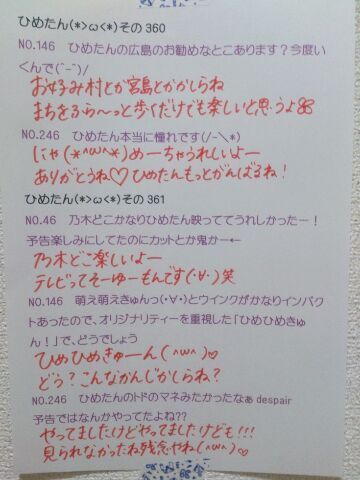 ひめたん(*>ω<*)その360
NO.146　ひめたんの広島のお勧めなとこあります？今度い
くんで(˘-˘)/
お好み村とか宮島とかかしらね
まちをふら〜っと歩くだけでも楽しいと思うよ
NO.246　ひめたん本当に憧れです(/-＼*)
にゃ(*^ω^*)めーちゃうれしいよー
ありがとうね♡ひめたんもっとがんばるね！
ひめたん(*>ω<*)その361
NO.46　乃木どこかなりひめたん映っててうれしかったー！
予告楽しみにしてたのにカットとか鬼かー←
乃木どこ楽しいよー
テレビってそーゆーもんです(・∀・)笑
NO.146　萌え萌えきゅんっ(・∀・)とウインクがかなりインパク
トあったので、オリジナリティーを重視した「ひめひめきゅ
ん！」で、どうでしょう
ひめひめきゅーん(^ω^)♡
どう？こんなかんじかしらね？
NO.246　ひめたんのトドのマネみたかったなぁ despair
予告ではなんかやってたよね??
やってましたけどやってましたけども!!!
見られなかったね残念やね(^ω^)♡